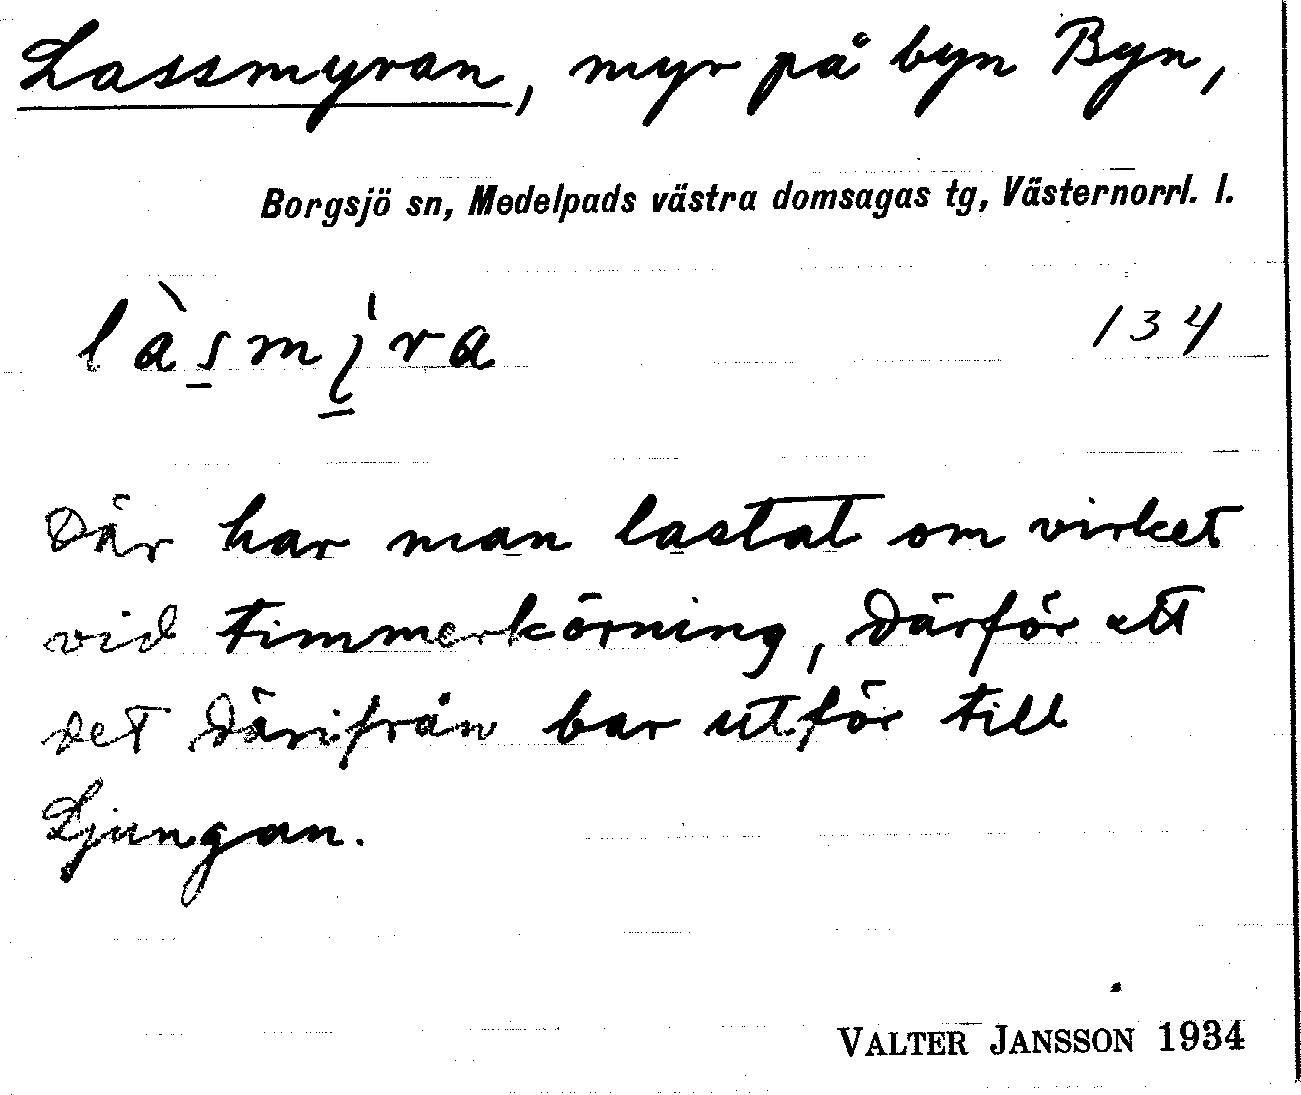 Lassmyran, myr på byn Byn,
Borgsjö sn, Medelpads västra domsagas tg, Västernorrl. l.
làsmy̍ra 134
Där har man lastat om virket
vid timmerkörning, därför att
det därifrån bar utför till
Ljungan.
VALTER JANSSON 1934